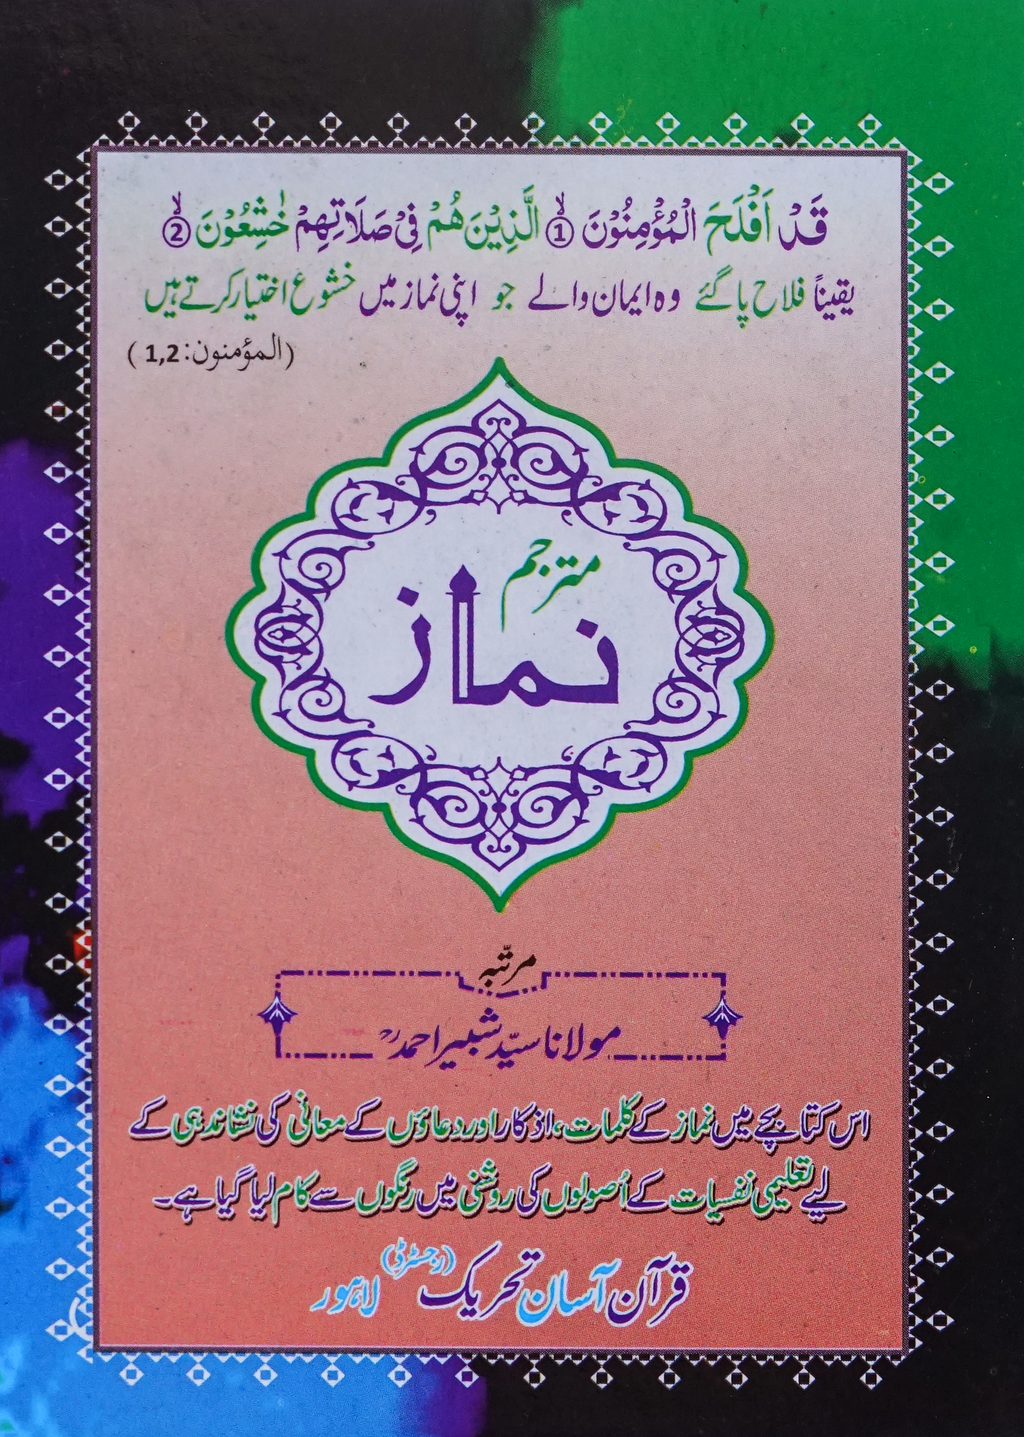 قَدْ اَفْلَحَ الْمُؤْمِنُوْنَ ۙ1 الَّذِيْنَ هُمْ فِيْ صَلَاتِهِمْ خٰشِعُوْنَ ۙ2
یقیناً فلاح پا گئے وہ ایمان والے جو اپنی نماز میں خشوع اختیار کرتے ہیں
(المؤمنون: 1,2)
مترجم
نماز
مرتّبہ
مولانا سیّد شبیر احمدؒ
اس کتابچے میں نماز کے کلمات، اذکار اور دعاؤں کے معانی کی نشاندہی کے
لیے تعلیمی نفسیات کے اُصولوں کی روشنی میں رنگوں سے کام لیا گیا ہے۔
قرآن آسان تحریک (رجسٹرڈ) لاہور